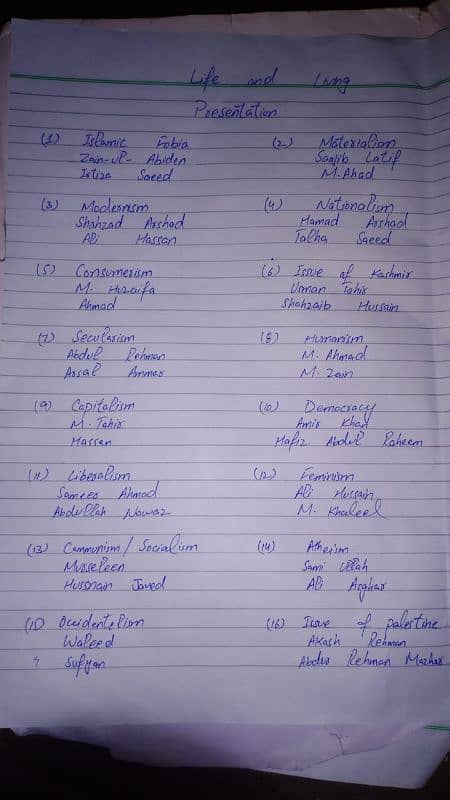 Life and Living
Presentation
(1) Islamic Fobia
Zain-ul-Abiden
Irtiza Saeed
(2) Materialism
Saqib Latif
M. Ahad
(3) Modernism
Shahzad Arshad
Ali Hassan
(4) Nationalism
Hamad Arshad
Talha Saeed
(5) Consumerism
M. Huzaifa
Ahmad
(6) Issue of Kashmir
Usman Tahir
Shahzaib Hussain
(7) Secularism
Abdul Rehman
Arsal Ammar
(8) Humanism
M. Ahmad
M. Zain
(9) Capitalism
M. Tahir
Hassan
(10) Democracy
Amir Khan
Hafiz Abdul Raheem
(11) Liberalism
Sameer Ahmad
Abdullah Nawaz
(12) Feminism
Ali Hussain
M. Khaleel
(13) Communism / Socialism
Musseleen
Hussnain Javed
(14) Atheism
Sami Ullah
Ali Asghar
(15) Occidentelism
Waleed
Sufyan
(16) Issue of palestine
Akash Rehman
Abdur Rehman Mazhar